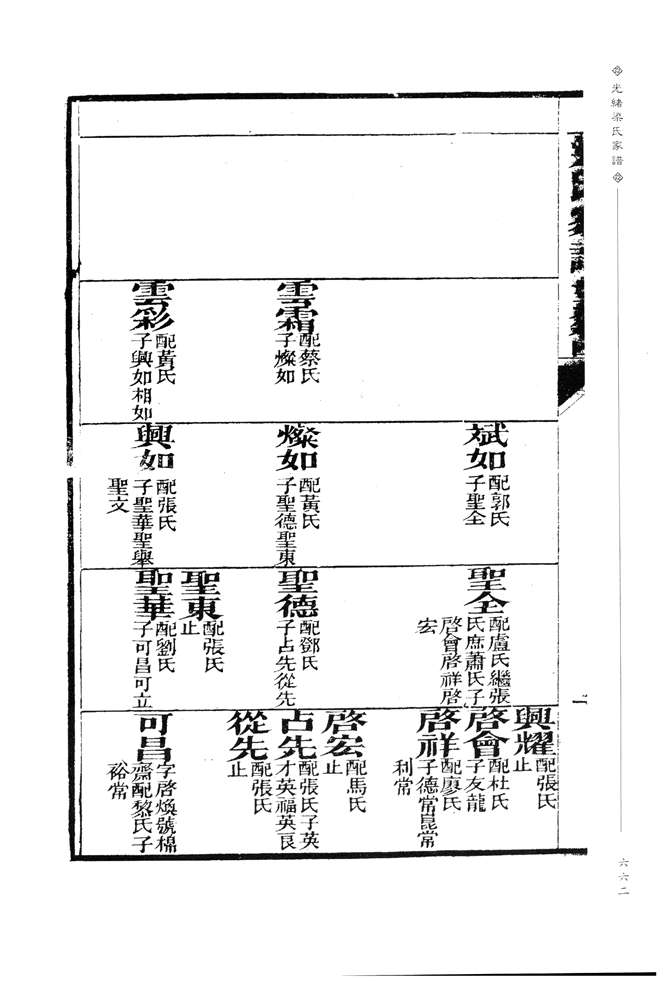 光緒梁氏家譜
六六二
雲霜
配蔡氏
子燦如
雲彩
配黃氏
子興如相如
斌如
配郭氏
子聖全
燦如
配黃氏
子聖德聖東
興如
配張氏
子聖華聖舉
聖文
聖全
配盧氏繼張
氏庶蕭氏子
啓會啓祥啓
宏
聖德
配鄧氏
子占先從先
聖東
配張氏
止
聖華
配劉氏
子可昌可立
二
興耀
配張氏
止
啓會
配杜氏
子友龍
啓祥
配廖氏
子德常昆常
利常
啓宏
配馬氏
止
占先
配張氏子英
才英福英艮
從先
配張氏
止
可昌
字啓煥號棉
齋配黎氏子
裕常